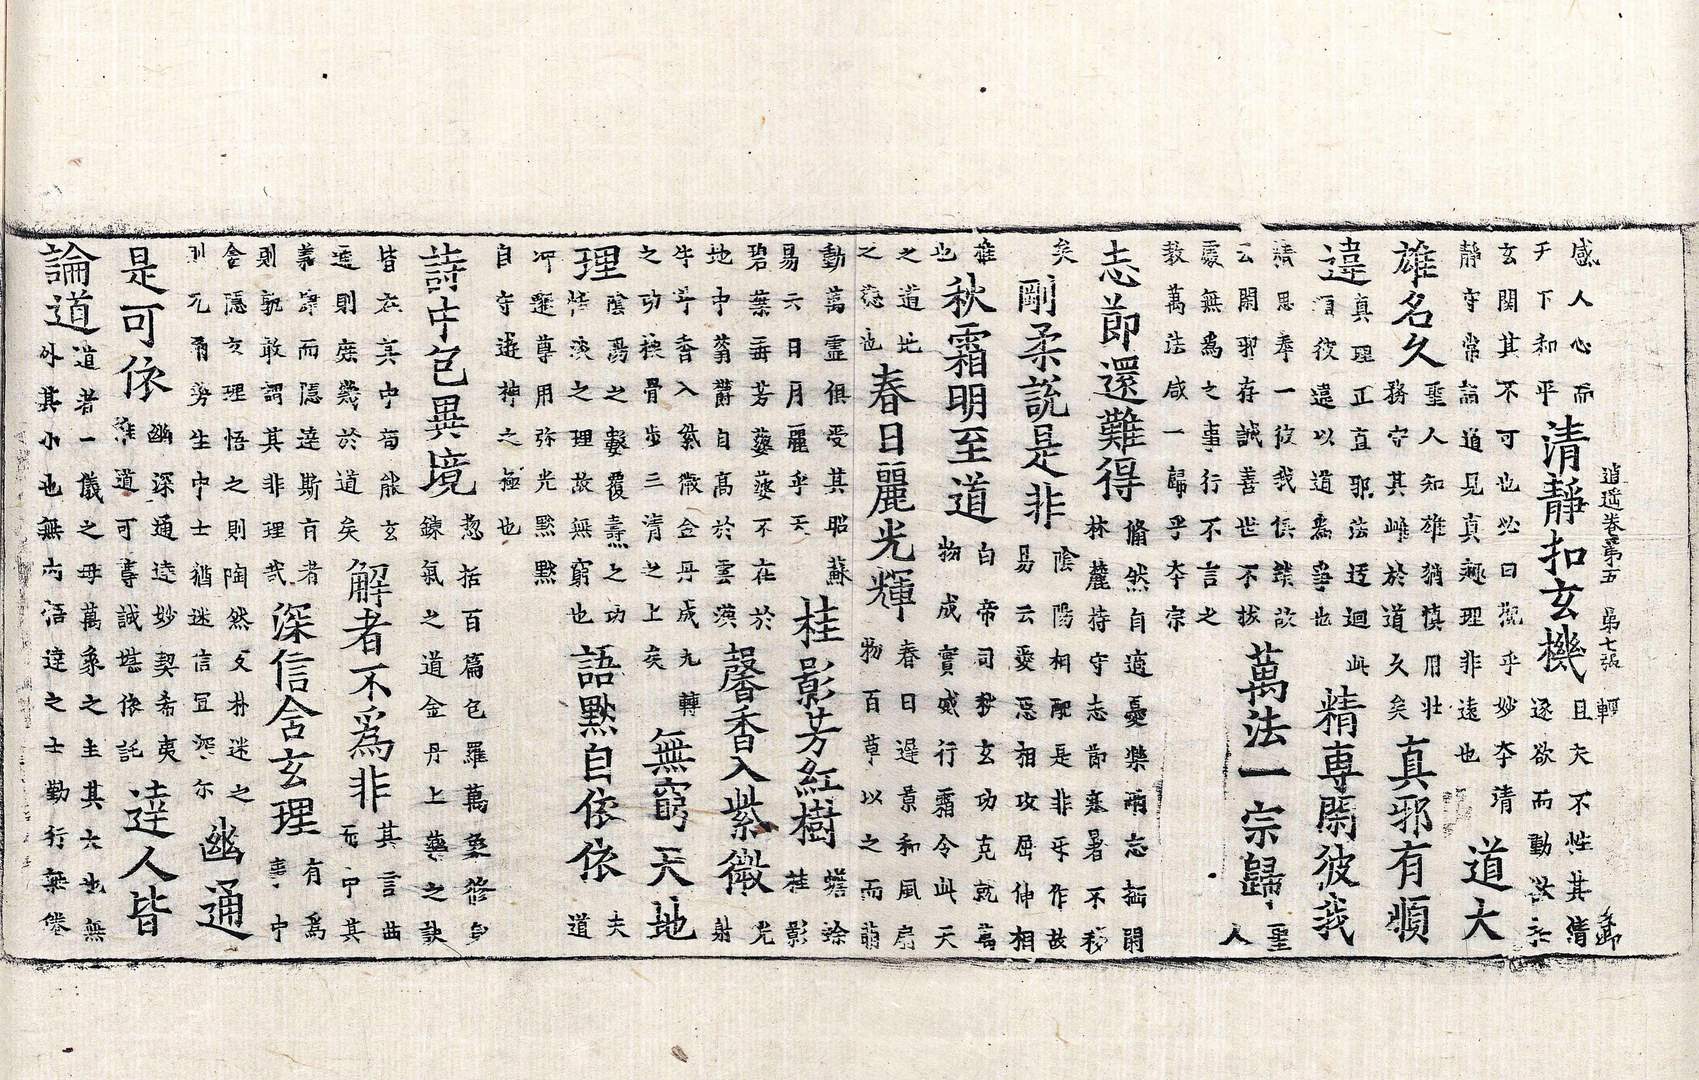 逍遥卷第五 第七張 輕
感人心而
天下和平
清靜扣玄機
且夫不性其清
逐欲而動
玄關其不可也必曰觀乎妙本清
靜守常詣道見真趣理非遠也
道大
雄名久
聖人知雄猶慎用壯
務守其雌於道久矣
真邪有順
違
真理正直邪法迂迴此
順彼違以道為爭也
精專閑彼我
精思奉一彼我俱
云閑邪存誠善世不拔
萬法一宗歸
聖
人
處無為之事行不言之
教萬法咸一歸乎本宗
志節還難得
翛然自適憂樂兩忘
林麓持守志節寒暑不移
矣
剛柔說是非
陰陽相配是非互作故
易云愛惡相攻屈伸相
推
也
秋霜明至道
白帝司秋玄功克就萬
物成實感行霜令此天
之道地
之德也
春日麗光輝
春日遲景和風扇
物百草以之而萌
動萬靈俱受其昭蘇
易云日月麗乎天
桂影芳紅樹
蟾蜍
桂影
碧葉垂芳不在於
地中蓊鬱自高於雲漢
馨香入紫微
光
射
牛斗香入紫微金丹成九轉
之功換骨步三清之上矣
無窮天地
理
陰陽之數覆燾之功
之理故無窮也
語默自依依
夫
道
尊用弥光默默
自守遊神之極也
詩中包異境
括百篇包羅萬象修身
鍊氣之道金丹上藥之訣
皆在其中苟能玄
通則庶幾於道矣
解者不為非
其言曲
而中其
義肆而隱達斯言者
則孰敢謂其非理哉
深信含玄理
有為
事中
含隱玄理悟之則陶然反朴迷之
則兀爾勞生中士猶迷信宜深尔
幽通
是可依
幽深通達妙契希夷
惟道可尊誠堪依託
達人皆
論道
道者一儀之母萬象之主其大也無
外其小也無內悟達之士勤行無倦